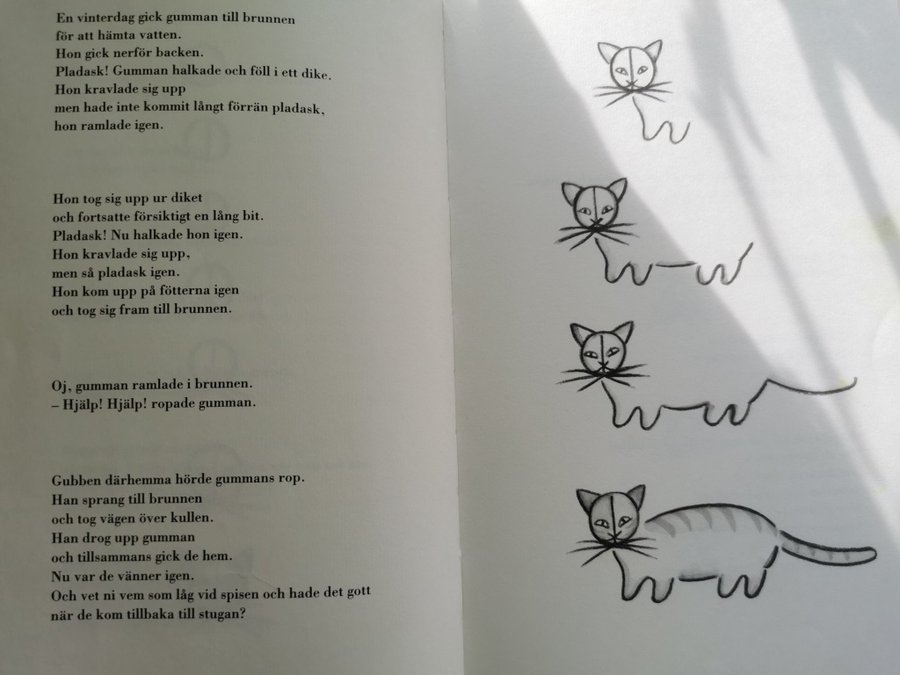 En vinterdag gick gumman till brunnen
för att hämta vatten.
Hon gick nerför backen.
Pladask! Gumman halkade och föll i ett dike.
Hon kravlade sig upp
men hade inte kommit långt förrän pladask,
hon ramlade igen.
Hon tog sig upp ur diket
och fortsatte försiktigt en lång bit.
Pladask! Nu halkade hon igen.
Hon kravlade sig upp,
men så pladask igen.
Hon kom upp på fötterna igen
och tog sig fram till brunnen.
Oj, gumman ramlade i brunnen.
– Hjälp! Hjälp! ropade gumman.
Gubben därhemma hörde gummans rop.
Han sprang till brunnen
och tog vägen över kullen.
Han drog upp gumman
och tillsammans gick de hem.
Nu var de vänner igen.
Och vet ni vem som låg vid spisen och hade det gott
när de kom tillbaka till stugan?